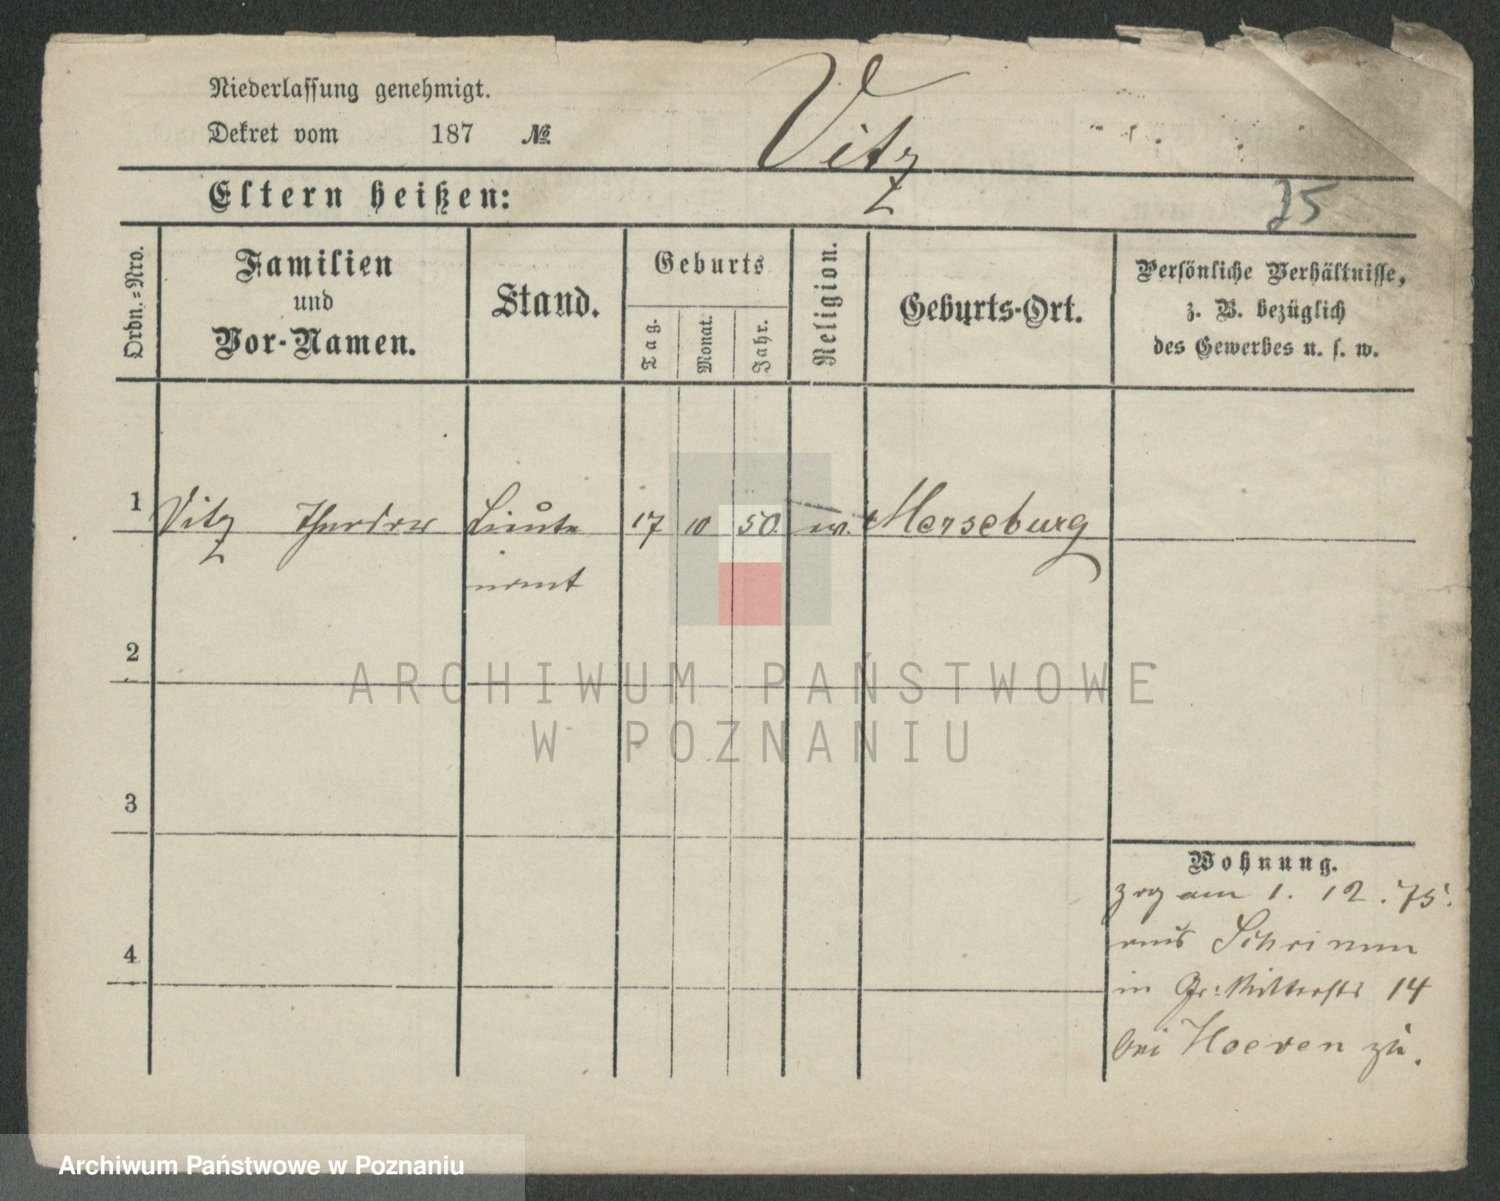 Niederlassung genehmigt.
Dekret vom 187 №
Vitz
Eltern heißen:
75
Ordn.=Nro.
Familien
und
Vor-Namen.
Stand.
Geburts
Tag.
Monat.
Jahr.
Religion.
Geburts-Ort.
Persönliche Verhältnisse,
z. B. bezüglich
des Gewerbes u. s. w.
1 Vitz Theodor Lieute 17 10 50. ev. Merseburg
nant
2
ARCHIWUM PAŃSTWOWE
W POZNANIU
3
Wohnung.
zog am 1. 12. 75.
aus Schrimm
4
in Gr: Ritterstr 14
bei Hoeven zu.
Archiwum Państwowe w Poznaniu